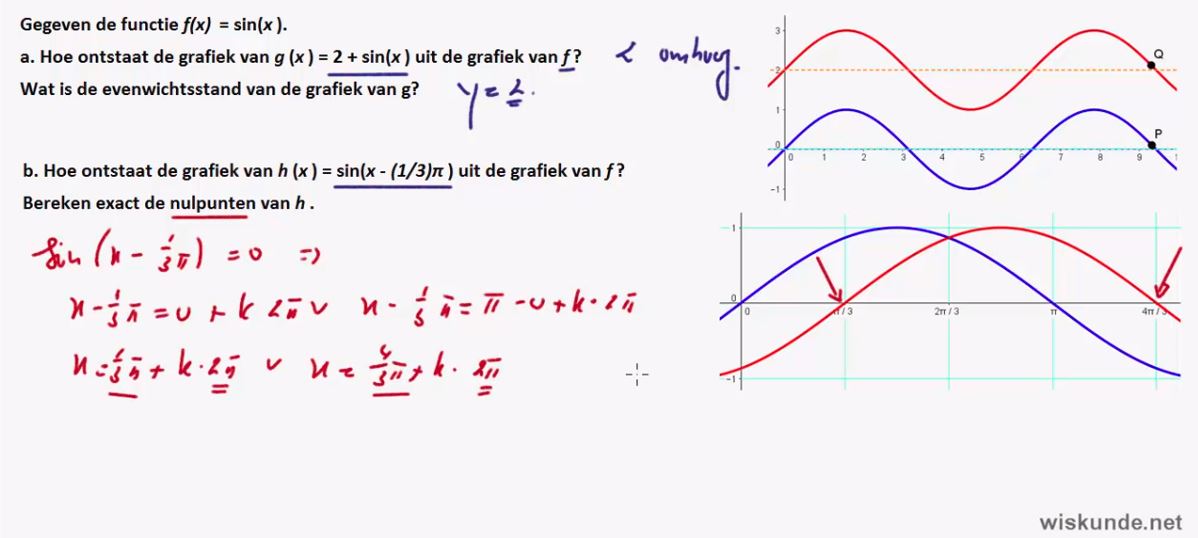 Gegeven de functie f(x) = sin(x ).
a. Hoe ontstaat de grafiek van g (x ) = 2 + sin(x ) uit de grafiek van f?
2 omhoog.
Wat is de evenwichtsstand van de grafiek van g?
y = 2.
b. Hoe ontstaat de grafiek van h (x ) = sin(x - (1/3)π ) uit de grafiek van f ?
Bereken exact de nulpunten van h .
sin (x - 1/3 π) = 0 ⇒
x - 1/3 π = 0 + k 2π ∨ x - 1/3 π = π - 0 + k · 2π
x = 1/3 π + k · 2π ∨ x = 4/3 π + k · 2π
3
2
1
0
-1
0 1 2 3 4 5 6 7 8 9 1
Q
P
1
0
-1
0 π/3 2π/3 π 4π/3
wiskunde.net